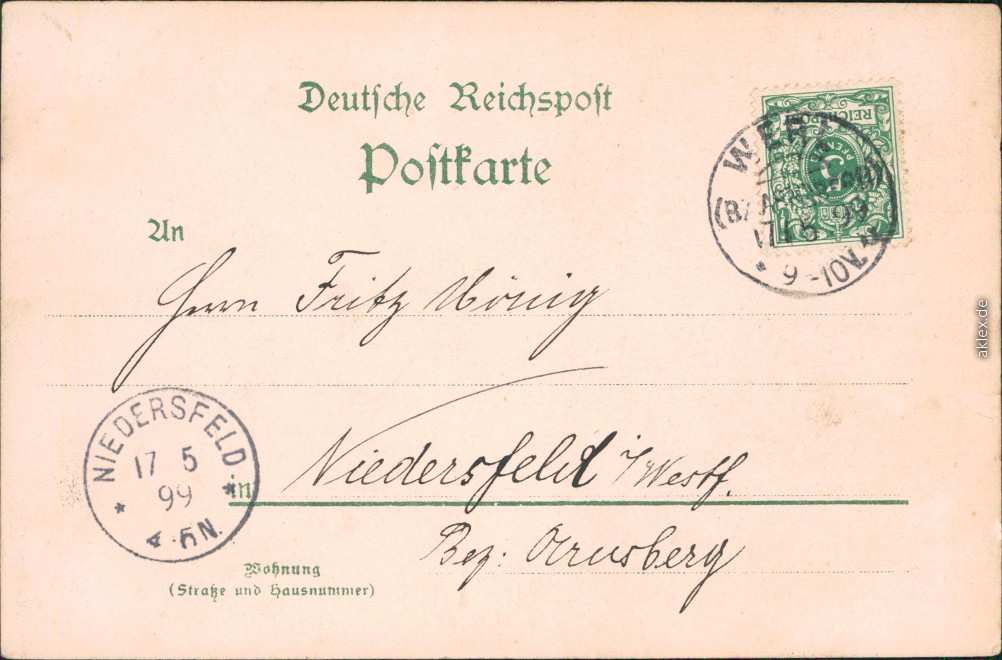 Deutsche Reichspost
Postkarte
REICHSPOST
5
PFENNIG
WERL
(BZ. ARNSBERG)
17/5 99
* 9-10V. *
An
Herrn Fritz König
NIEDERSFELD
17 5
99
* 4-5N. *
in Niedersfeld i/Westf.
Bez. Arnsberg
Wohnung
(Straße und Hausnummer)
aklex.de